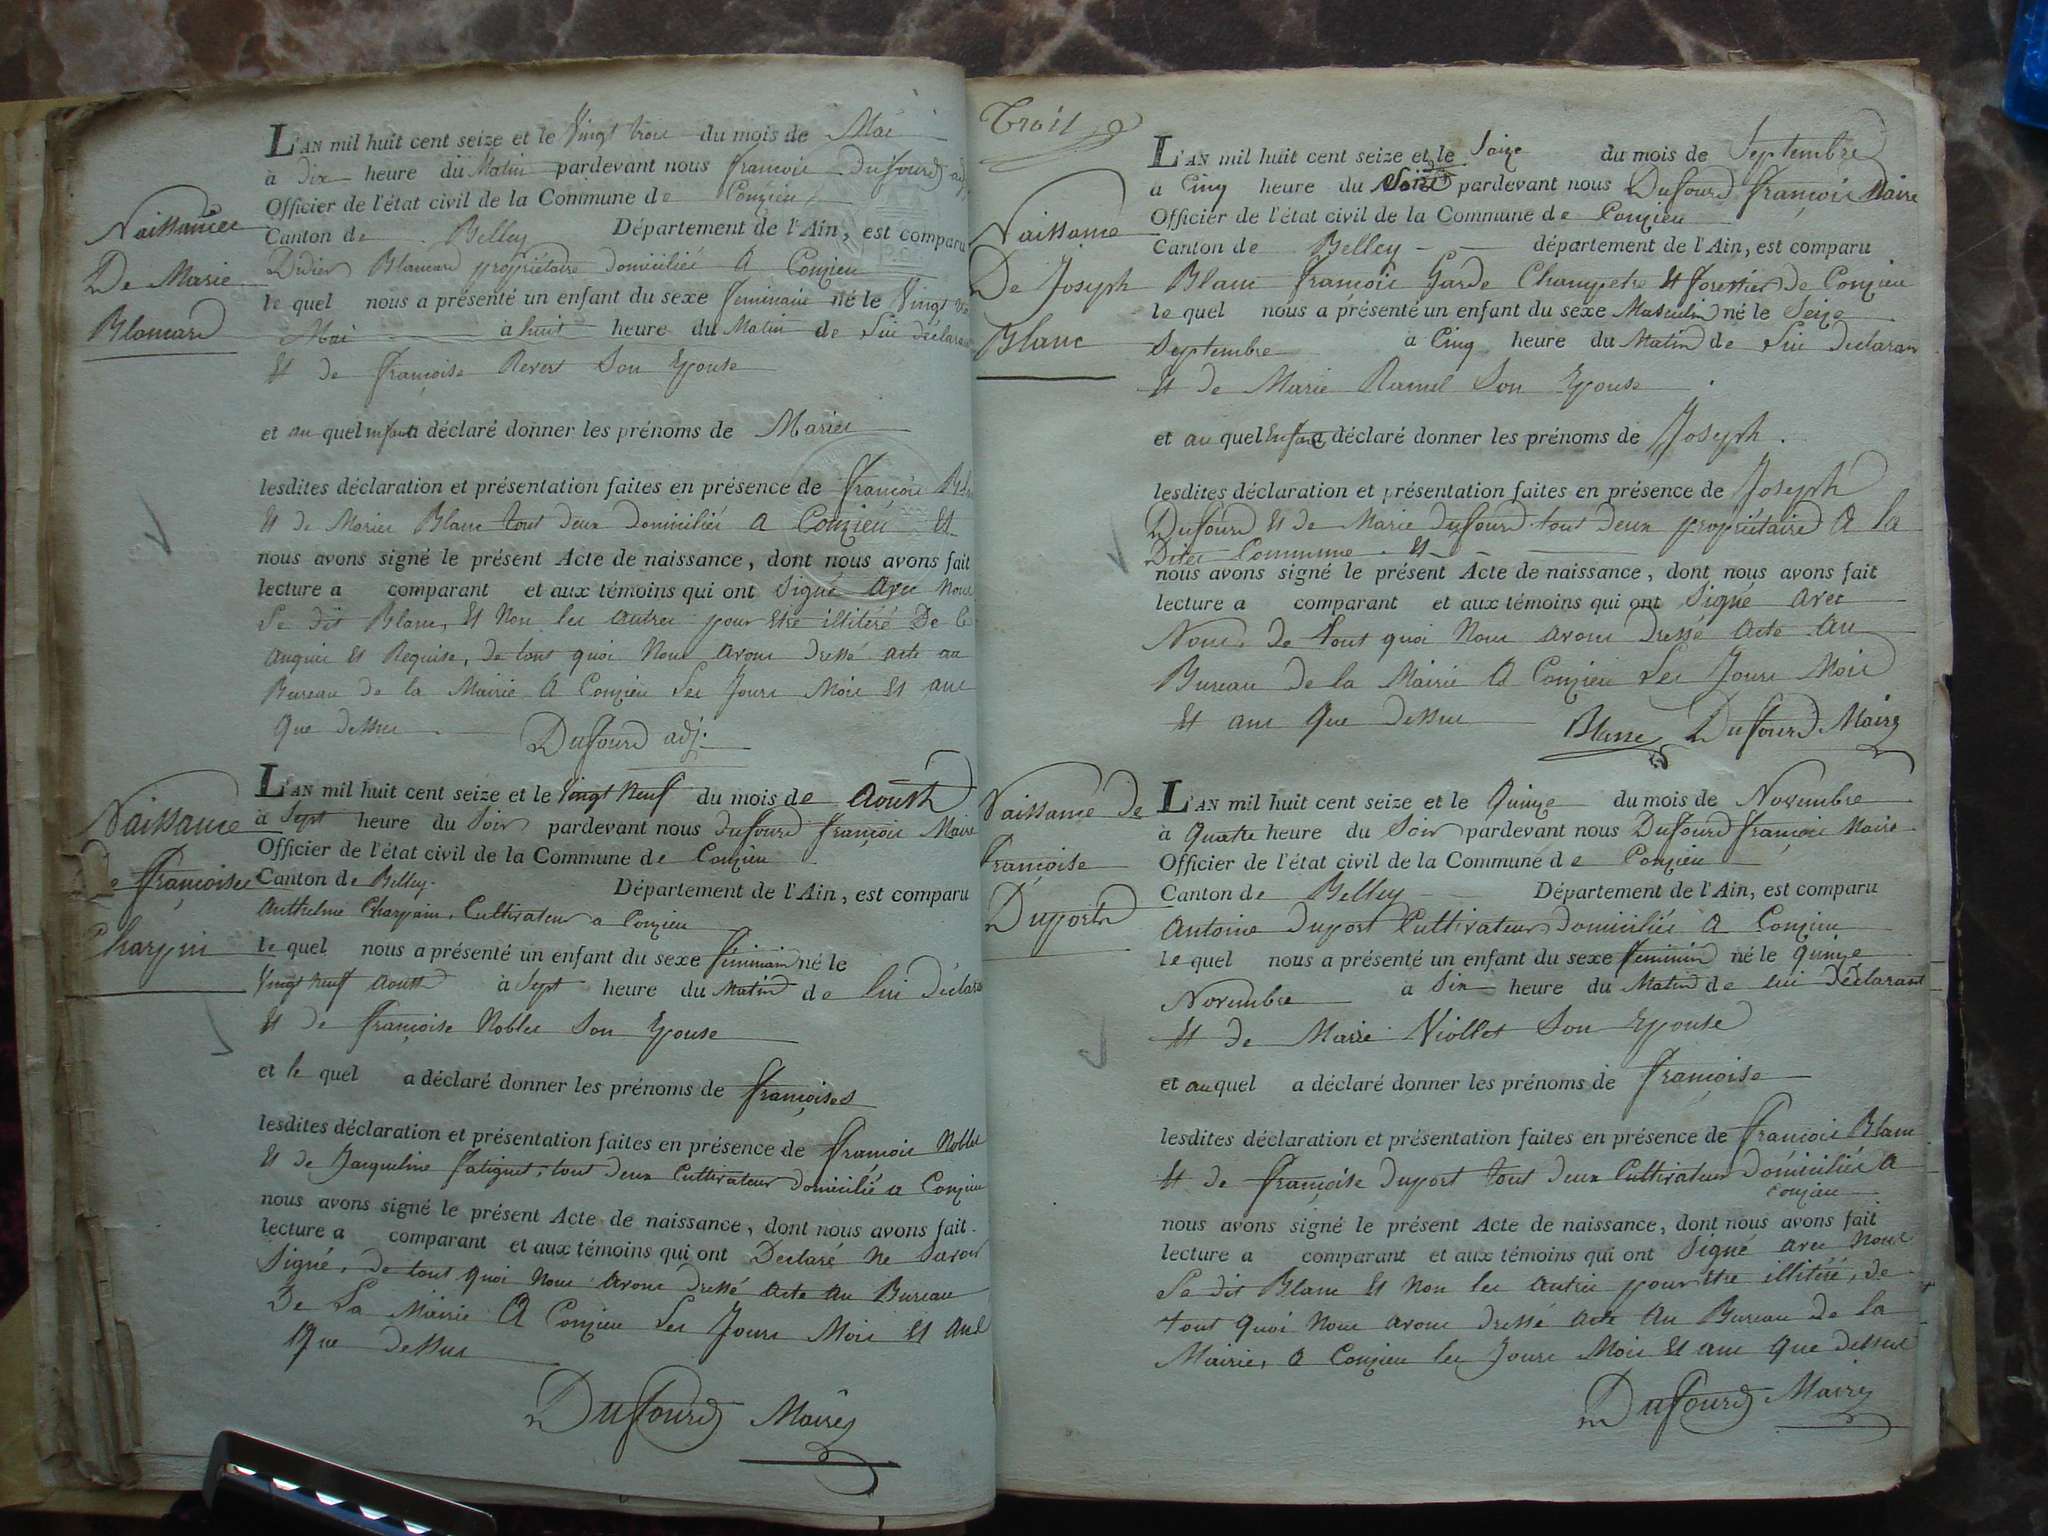 Naissance
De Marie
Blancard
L'AN mil huit cent seize et le Vingt trois du mois de Mai
à dix heure du Matin pardevant nous françois Dufourd adj
Officier de l'état civil de la Commune de Conzieu
Canton de Belley Département de l'Ain, est comparu
Didier Blancard propriétaire domicilié A Conzieu
le quel nous a présenté un enfant du sexe feminain né le Vingt
Mai à huit heure du Matin de lui déclarant
Et de françoise Revert Son Epouse
et au quel enfant a déclaré donner les prénoms de Marie
lesdites déclaration et présentation faites en présence de françois
Et de Marie Blanc tout deux domicilié A Conzieu Et
nous avons signé le présent Acte de naissance, dont nous avons fait
lecture a comparant et aux témoins qui ont Signé avec Nous
Le dit Blanc, Et Non les autres pour être illitéré De Ce
Anquis Et Requise, de tout quoi Nous avons dressé acte au
Bureau de la Mairie A Conzieu Les Jours Mois Et ans
Que dessus
Dufourd adj.
Naissance
De françoise
Charpin
L'AN mil huit cent seize et le Vingt Neuf du mois de Aousth
à Sept heure du Soir pardevant nous Dufourd françois Maire
Officier de l'état civil de la Commune de Conzieu
Canton de Belley. Département de l'Ain, est comparu
Anthelme Charpain, Cultivateur a Conzieu
le quel nous a présenté un enfant du sexe féminain né le
Vingt Neuf Aoust à Sept heure du Matin de lui Déclara
Et de françoise Nobles Son Epouse
et le quel a déclaré donner les prénoms de françoise
lesdites déclaration et présentation faites en présence de françois Noble
Et de Jacqueline fatiguet, tout deux Cultivateur domicilié a Conzieu
nous avons signé le présent Acte de naissance, dont nous avons fait
lecture a comparant et aux témoins qui ont Déclaré Ne Savoir
Signé, de tout quoi Nous avons dressé Acte Au Bureau
De La Mairie A Conzieu Les Jours Mois Et Ans
Que dessus
Dufourd Maire
Trois
Naissance
De Joseph
Blanc
L'AN mil huit cent seize et le Saize du mois de Septembre
à Cinq heure du Soir pardevant nous Dufourd françois Maire
Officier de l'état civil de la Commune de Conzieu
Canton de Belley département de l'Ain, est comparu
Blanc françois Garde Champetre Et forestier de Conzieu
le quel nous a présenté un enfant du sexe Masculin né le Seize
Septembre à Cinq heure du Matin de Lui Declaran
Et de Marie Ramel Son Epouse
et au quel Enfant a déclaré donner les prénoms de Joseph.
lesdites déclaration et présentation faites en présence de Joseph
Dufourd Et de Marie Dufourd tout deux propriétaire A la
Dites Commune. Et
nous avons signé le présent Acte de naissance, dont nous avons fait
lecture a comparant et aux témoins qui ont Signé avec
Nous, de tout quoi Nous avons dressé acte au
Bureau de la Mairie A Conzieu Les Jours Mois
Et ans Que dessus
Blanc Dufourd Maire
Naissance de
Françoise
Duport
L'AN mil huit cent seize et le Quinze du mois de Novembre
à Quatre heure du Soir pardevant nous Dufourd françois Maire
Officier de l'état civil de la Commune de Conzieu
Canton de Belley Département de l'Ain, est comparu
Antoine Duport Cultivateur domicilié A Conzieu
le quel nous a présenté un enfant du sexe feminin né le Quinze
Novembre à Six heure du Matin de lui Déclarant
Et de Marie Viollet Son Epouse
et au quel a déclaré donner les prénoms de françoise
lesdites déclaration et présentation faites en présence de françois Blanc
Et de françoise Duport tout deux Cultivateur domicilié A
Conzieu
nous avons signé le présent Acte de naissance, dont nous avons fait
lecture a comparant et aux témoins qui ont Signé avec Nous
Le dit Blanc Et Non les autres pour être illitéré, de
tout Quoi Nous avons dressé acte Au Bureau de la
Mairie, A Conzieu les Jours Mois Et ans Que dessus
Dufourd Maire